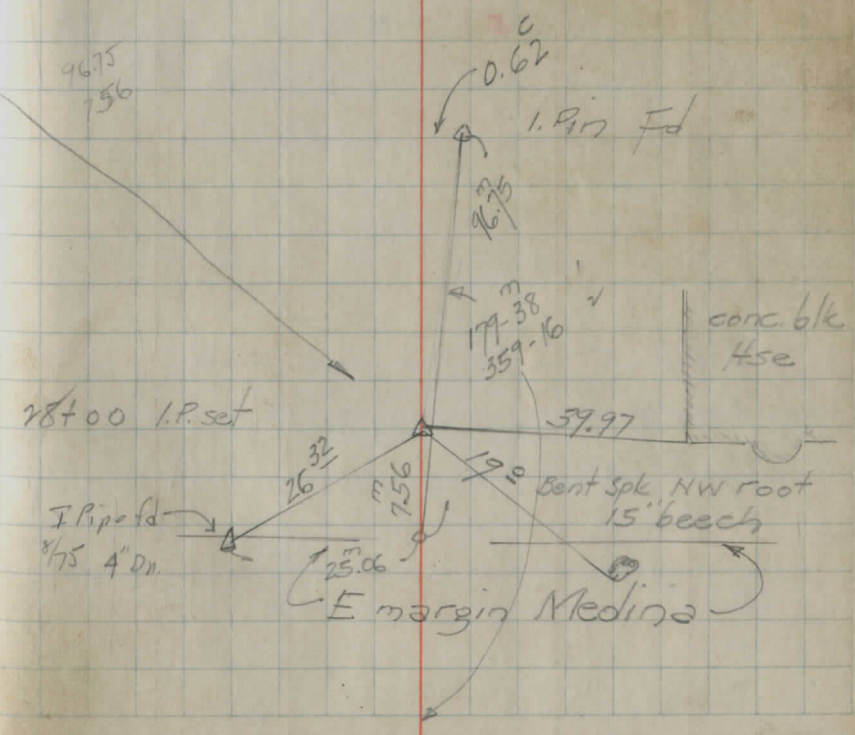 96.75
7.56
C
0.62
I. Pin Fd
m
96.75
m
179-38
359-16
conc. blk
Hse
28+00 I.P. set
59.97
26 32
m
7.56
19 10
Bent Spk NW root
15" beech
I Pipe fd
8/75 4" Dn.
m
25.06
E margin Medina